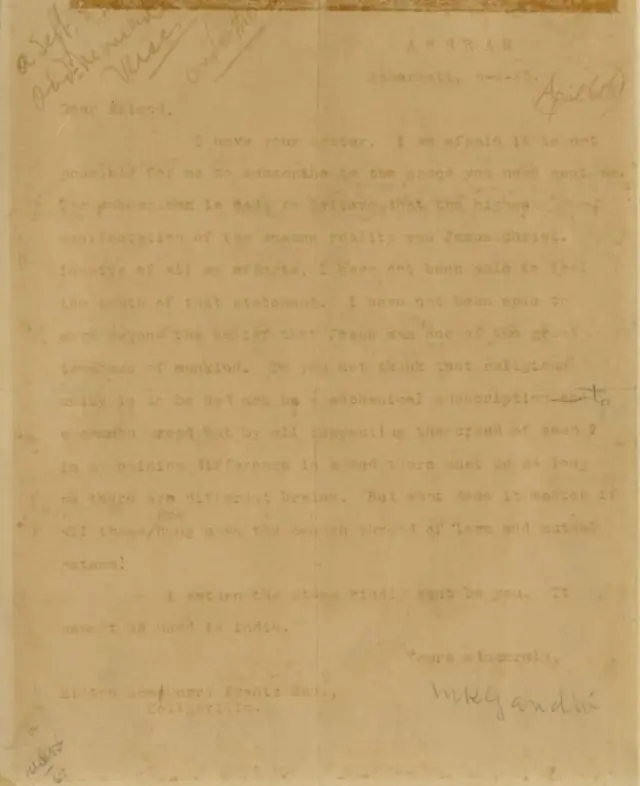 ASHRAM
Sabarmati, 6-4-26.
April 6th
Dear Friend,
I have your letter. I am afraid it is not
possible for me to subscribe to the creed you have sent me.
The subscriber is made to believe that the highest
manifestation of the unseen reality was Jesus Christ.
Inspite of all my efforts, I have not been able to feel
the truth of that statement. I have not been able to
move beyond the belief that Jesus was one of the great
teachers of mankind. Do you not think that religious
unity is to be had not by a mechanical subscription to
a common creed but by all respecting the creed of each ?
In my opinion difference in creed there must be so long
as there are different brains. But what does it matter if
all these are hung upon the common thread of love and mutual
esteem!
I return the stamp kindly sent by you. It
cannot be used in India.
Yours sincerely,
MKGandhi
Milton Newberry Frantz Esq.,
Collegeville,